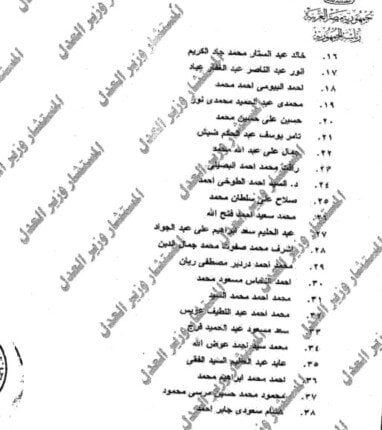 جمهورية مصر العربية
رئاسة الجمهورية
١٦. خالد عبد الستار محمد جاد الكريم
١٧. انور عبد الناصر عبد الغفار عياد
١٨. احمد البيومى احمد محمد
١٩. محمدى عبد الحميد محمدى نور
٢٠. حسين على حسين محمد
٢١. تامر يوسف عبد الحكم
٢٢. جمال على عبد الله محمد
٢٣. رافت محمد احمد
٢٤. د. السيد احمد الطوخى احمد
٢٥. صلاح على سلطان محمد
٢٦. محمد سعيد احمد فتح الله
٢٧. عبد الحليم سعد ابراهيم على عبد الجواد
٢٨. اشرف محمد صفوت محمد جمال الدين
٢٩. محمد احمد دردير مصطفى
٣٠. احمد مسعود محمد
٣١. محمد احمد محمد السيد
٣٢. محمد احمد عبد اللطيف
٣٣. سعد مسعود عبد الحميد فرج
٣٤. محمد سيد احمد عوض الله
٣٥. عابد عبد الحليم السيد الفقى
٣٦. احمد محمد ابراهيم محمد
٣٧. محمود محمد حسين مرسى محمود
٣٨. هشام سعودى جابر احمد
المستشار وزير العدل